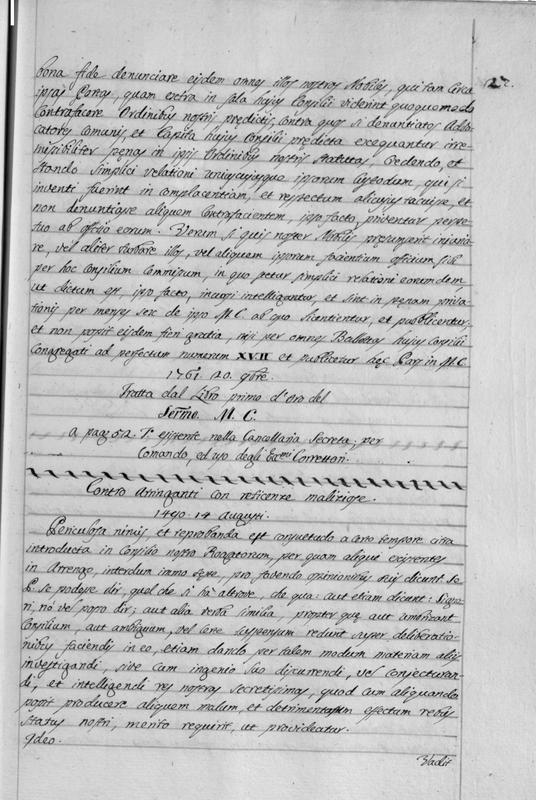 27.
bona fide denunciare eisdem omnes illos nostros Nobiles, qui tam circa
ipsas Portas, quam extra in sala hujus Consilii viderint quoquomodo
Contrafacere Ordinibus nostris predictis, contra quos si denuntiatos Advo-
catores Comunis, et Capita hujus Consilii predicta exequantur irre-
misibiliter pęnas in ipsis Ordinibus nostris statutas Credendo, et
stando simplici relationi uniuscujusque ipsorum Custodum, qui si
inventi fuerint in complacentiam, et respectum alicujus tacuisse, et
non denuntiasse aliquem Contrafacientem, ipso facto, priventur perpe-
tuo ab officio eorum. Verum si quis noster Nobilis pręsumpserit injuria-
re, vel aliter turbare illos, vel aliquem ipsorum facientium officium sibi
per hoc Consilium Commissum, in quo stetur simplici relationi eorundem
ut dictum est, ipso facto, incursi intelligantur, et sint in pęnam priva-
tionis per menses sex de ipso M. C. ab quo licentientur, et publicentur;
et non possit eisdem fieri gratia, nisi per omnes Ballottas hujus Consilii
Congregati ad perfectum numerum XVII et publicetur hęc Pars in M. C.
1761. 20. 9bre.
Tratta dal Libro primo d'Oro del
Sermo. M. C.
a pag. 52. To. esistente nella Cancellaria Secreta; per
Comando, ed uso degli Eccmi Correttori.
Contro Arringanti con reticenze maliziose.
1490. 14 Augusti.
Periculosa nimis, et reprobanda est consuetudo a certo tempore citra
introducta in Consilio nostro Rogatorum, per quam aliqui existentes
in Arrengo, interdum immo sępe, pro favendo opinionibus suis dicunt. Se
L. se podesse dir, quel che si hà altrove, de qua: aut etiam dicunt: Signo-
ri, nò vel posso dir; aut alia verba similia, propter quę aut ambizant
Consilium, aut ambiguum, vel certe suspensum redunt super deliberatio-
nibus faciendis in eo, etiam dando per talem modum materiam aliis
investigandi, sive cum ingenio suo discurrendi, vel conjecturan-
di, et intelligendi res nostras secretissimas, quod cum aliquando
possit producere aliquem malum, et detrimentosum effectum rebus
status nostri, merito requirit, ut provideatur.
Ideo.
Vadit